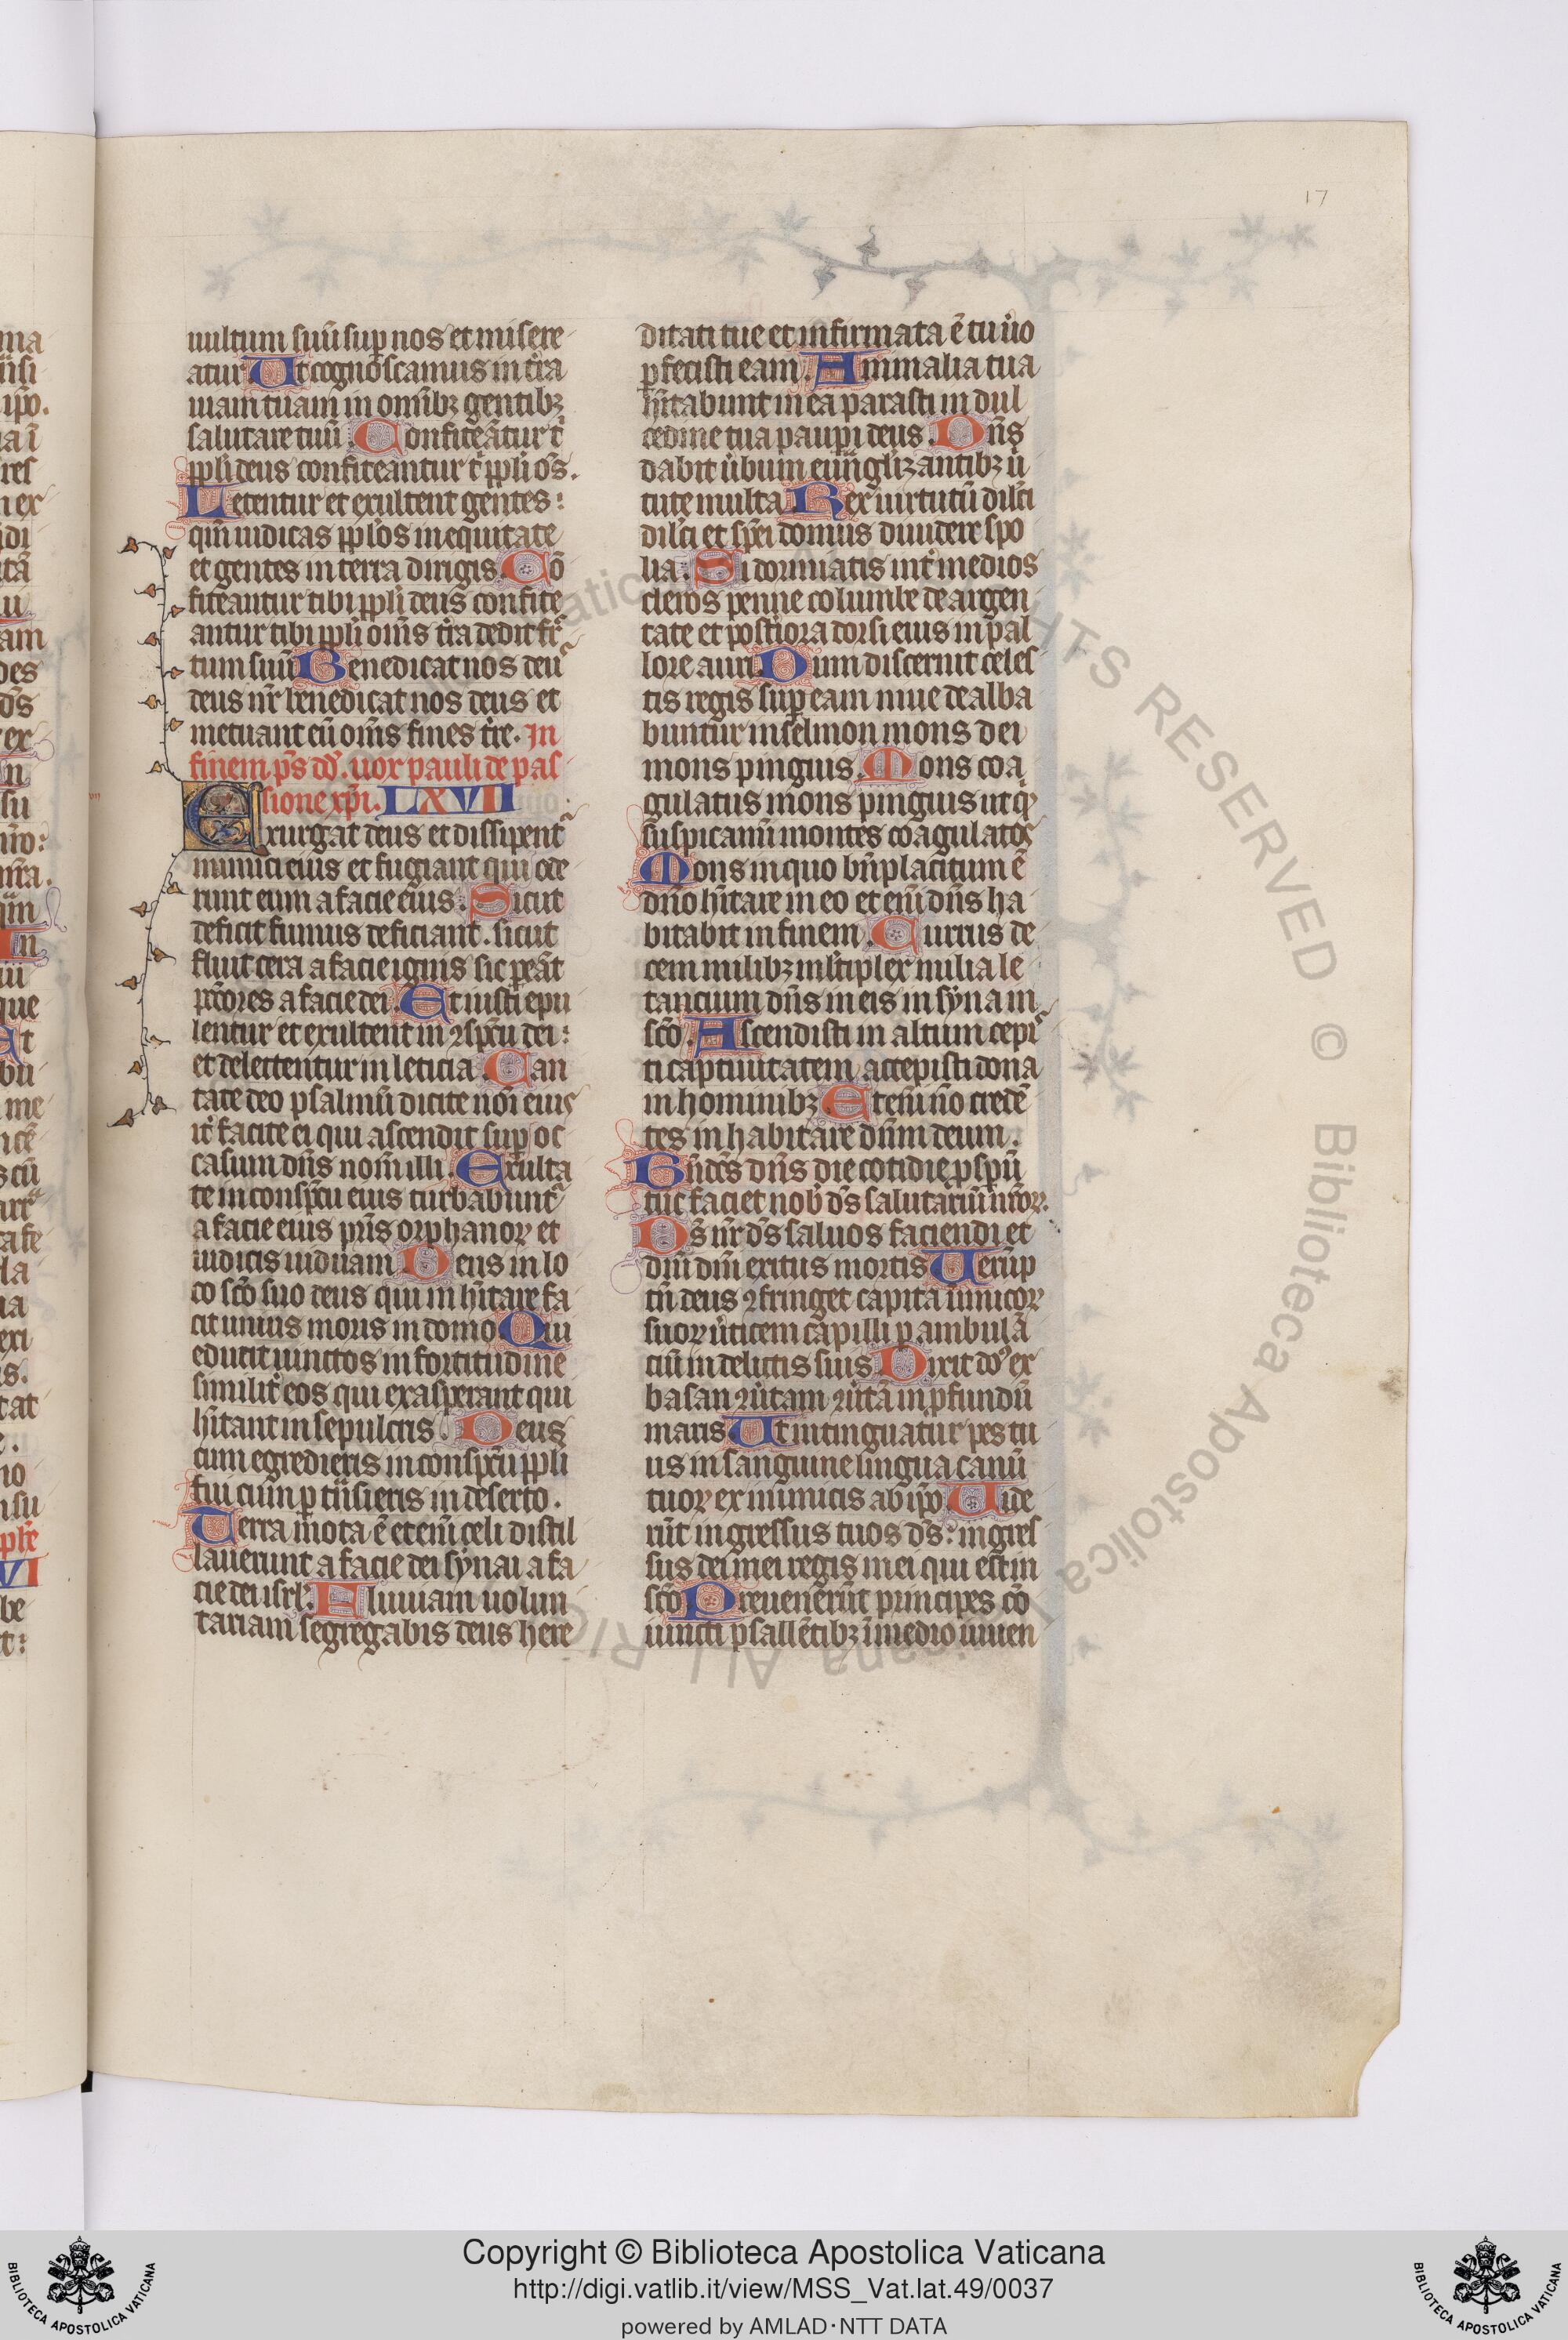 17
uultum suū sup nos et misere
atur Ut cognoscamus in tr̃a
uiam tuam in omĩbꝫ gentibꝫ
salutare tuū. Confiteãtur t̃
ppl̃i deus confiteantur t̃ ppl̃i oẽs.
Letentur et exultent gentes:
qm̃ iudicas ppl̃os in equitate
et gentes in terra dirigis. Cõ
fiteantur tibi ppl̃i deus confite
antur tibi ppl̃i oms̃ tr̃a dedit fr̃c
tum suū Benedicat nos deus
deus nr̃ benedicat nos deus et
metuant eū oms̃ fines tr̃e. In
finem ps̃ dd̃. uox pauli de pas
sione xp̃i. LXVII
Exurgat deus et dissipent̃
inimici eius et fugiant qui ode
runt eum a facie eius. Sicut
deficit fumus deficiant. sicut
fluit cera a facie ignis sic ꝑeãt
pctõres a facie dei. Et iusti epu
lentur et exultent in ꝯspc̃u dei:
et delectentur in leticia. Can
tate deo psalmū dicite nõi eius
it̃ facite ei qui ascendit sup oc
casum dñs nom̃ illi. Exulta
te in conspc̃u eius turbabunt̃
a facie eius pr̃is orphanoꝝ et
iudicis uiduam. Deus in lo
co sc̃o suo deus qui in hĩtare fa
cit unius moris in domo Qui
educit uinctos in fortitudine
similit̃ eos qui exasperant qui
hĩtant in sepulcris. Deus
cum egredieris in conspc̃u ppl̃i
tui cum ꝑ tũsieris in deserto.
Terra mota ẽ eteñi celi distil
lauerunt a facie dei synai a fa
cie dei isrl̃. Pluuiam uolun
tariam segregabis deus here
ditati tue et infirmata ẽ tu ũo
ꝑfecisti eam. Animalia tua
hĩtabunt in ea parasti in dul
cedine tua paupi deus. Dñs
dabit ũbum euãgl̃izantibꝫ ũ
tute multa Rex uirtutū dil̃cti
dil̃cti et spẽi domus diuidere spo
lia. Si dormiatis int̃ medios
cleros penne columbe de argen
tate et posteriora dorsi eius in pal
lore auri. Dum discernit celes
tis regis sup eam niue dealba
buntur in selmon mons dei
mons pinguis. Mons coa
gulatus mons pinguis ut qͥ
suspicamī montes coagulatos
Mons in quo bñplacitum ẽ
dño hĩtare in eo et eñi dñs ha
bitabit in finem. Currus de
cem milibꝫ ml̃tiplex milia le
tancium dñs in eis in syna in
sc̃o. Ascendisti in altum cepis
ti captiuitatem accepisti dona
in hominibꝫ. Eteñi ño credẽ
tes inhabitare dñm deum.
Bñdcs̃ dñs die cotidie ꝓspũ
iter faciet nob̃ ds̃ salutariū nr̃oꝝ.
Ds̃ nr̃ ds̃ saluos faciendi et
dñi dñi exitus mortis Uerūp
tñ deus ꝯfringet capita inimicoꝝ
suoꝝ ũticem capilli ꝑambulã
ciū in delictis suis. Dixit dõ ex
basan ꝯũtam ꝯũtã in ꝓfundū
maris Ut intinguatur pes tu
us in sanguine lingua canū
tuoꝝ ex inimicis ab ip̃o. Uide
rūt ingressus tuos ds̃: ingres
sus dei mei regis mei qui est in
sc̃o Preuenerūt principes cõ
iuncti psallẽtibꝫ ĩ medio iuuen
BIBLIOTECA APOSTOLICA VATICANA
Copyright © Biblioteca Apostolica Vaticana
http://digi.vatlib.it/view/MSS_Vat.lat.49/0037
powered by AMLAD·NTT DATA
BIBLIOTECA APOSTOLICA VATICANA